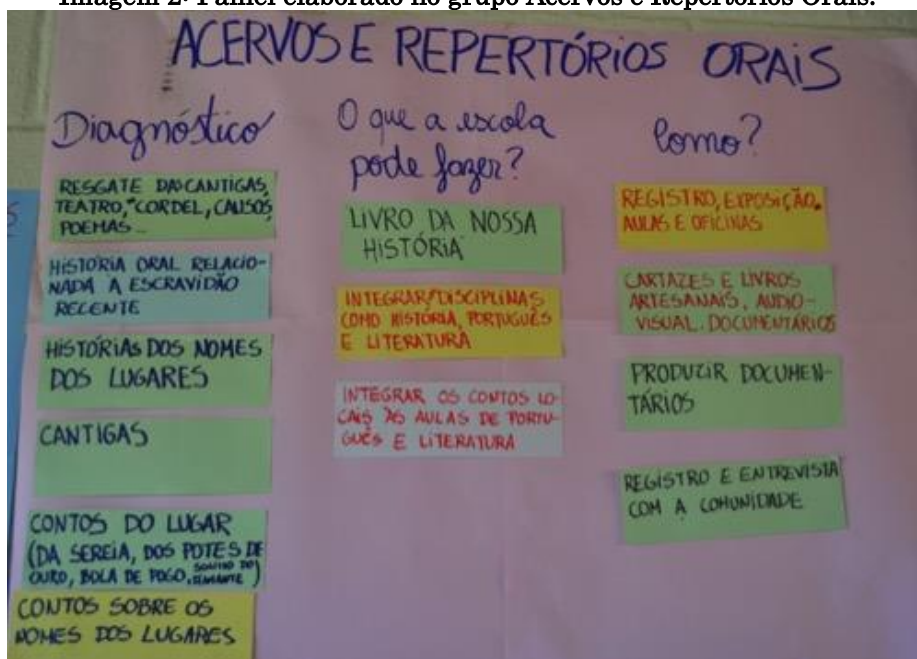 Imagem 2: Painel elaborado no grupo Acervos e Repertórios Orais.
ACERVOS E REPERTÓRIOS ORAIS
Diagnóstico
RESGATE DAS CANTIGAS,
TEATRO, CORDEL, CAUSOS,
POEMAS...
HISTÓRIA ORAL RELACIO-
NADA A ESCRAVIDÃO
RECENTE
HISTÓRIAS DOS NOMES
DOS LUGARES
CANTIGAS
CONTOS DO LUGAR
(DA SEREIA, DOS POTES DE
OURO, BOLA DE FOGO,
CONTOS SOBRE OS
NOMES DOS LUGARES
O que a escola
pode fazer?
LIVRO DA NOSSA
HISTÓRIA
INTEGRAR DISCIPLINAS
COMO HISTÓRIA, PORTUGUÊS
E LITERATURA
INTEGRAR OS CONTOS LO-
CAIS ÀS AULAS DE PORTU-
GUÊS E LITERATURA
Como?
REGISTRO, EXPOSIÇÃO,
AULAS E OFICINAS
CARTAZES E LIVROS
ARTESANAIS, AUDIO-
VISUAL. DOCUMENTÁRIOS
PRODUZIR DOCUMEN-
TÁRIOS
REGISTRO E ENTREVISTA
COM A COMUNIDADE